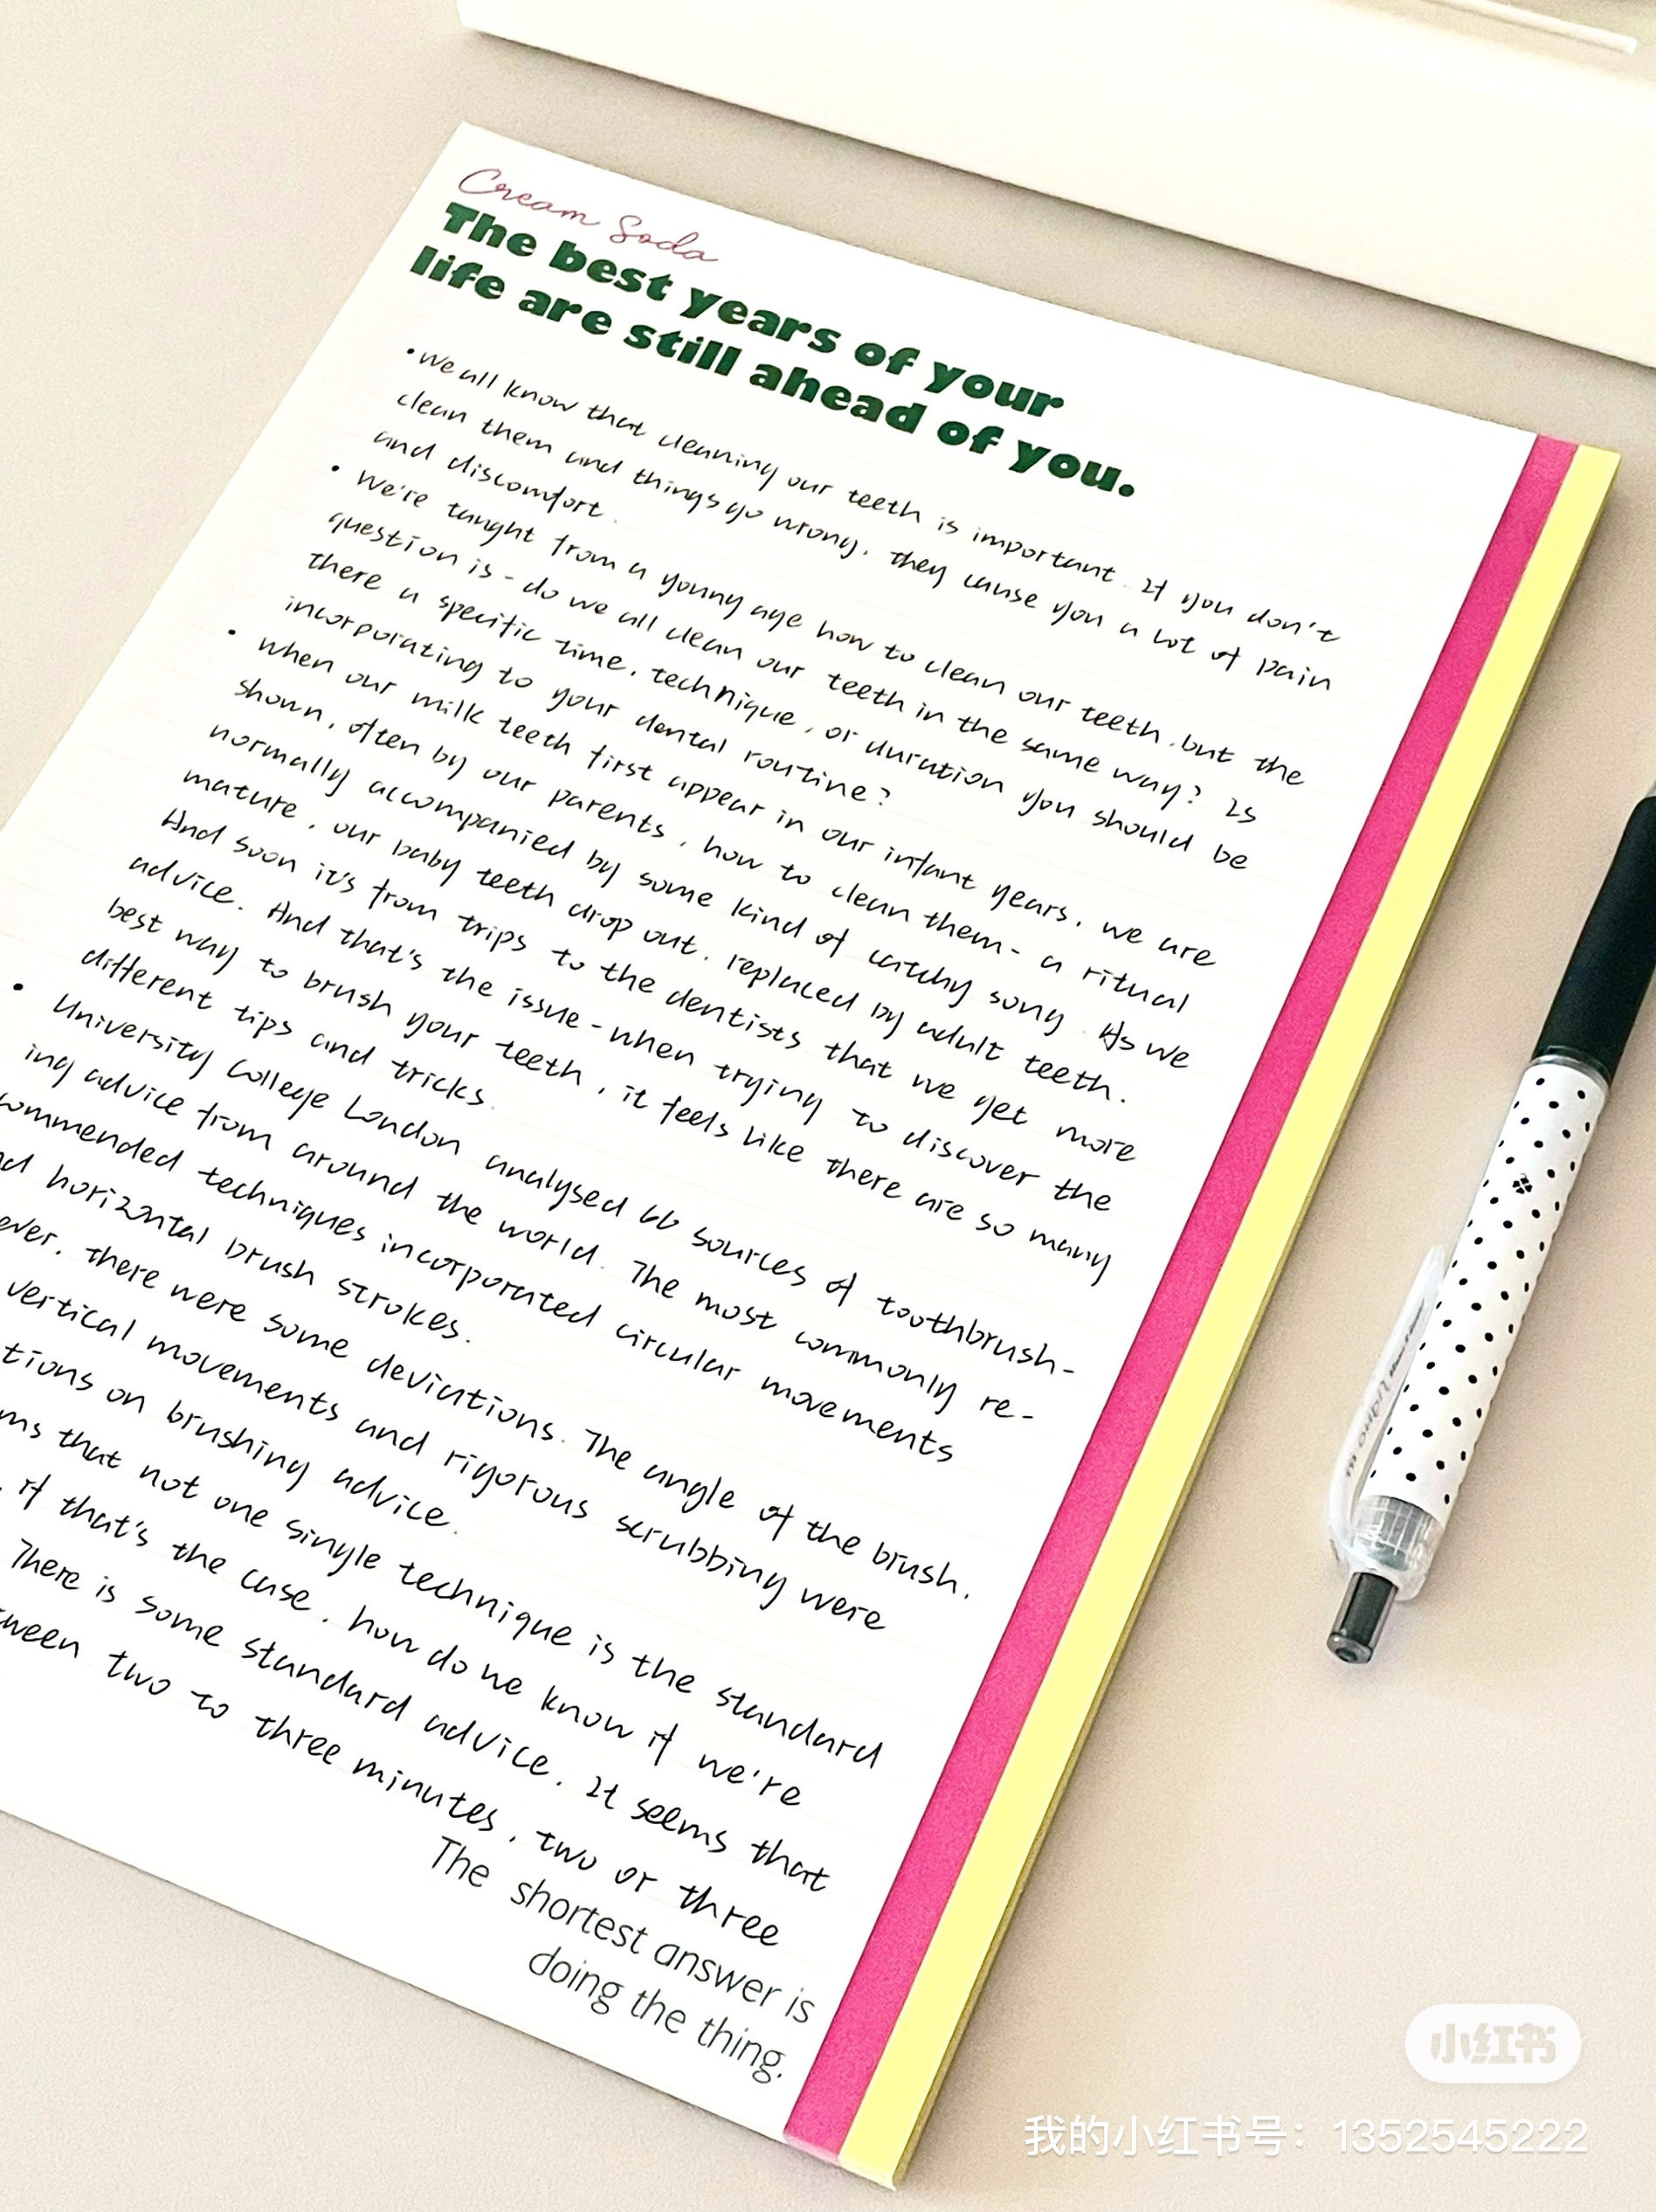 Cream Soda
The best years of your
life are still ahead of you.
• We all know that cleaning our teeth is important. If you don't
clean them and things go wrong, they cause you a lot of pain
and discomfort.
• We're taught from a young age how to clean our teeth, but the
question is - do we all clean our teeth in the same way? Is
there a specific time, technique, or duration you should be
incorporating to your dental routine?
• When our milk teeth first appear in our infant years, we are
shown, often by our parents, how to clean them - a ritual
normally accompanied by some kind of catchy song. As we
mature, our baby teeth drop out, replaced by adult teeth.
And soon it's from trips to the dentists that we get more
advice. And that's the issue - when trying to discover the
best way to brush your teeth, it feels like there are so many
different tips and tricks.
• University College London analysed 66 sources of toothbrush-
ing advice from around the world. The most commonly re-
ommended techniques incorporated circular movements
horizontal brush strokes.
ever, there were some deviations. The angle of the brush,
vertical movements and rigorous scrubbing were
tions on brushing advice.
ms that not one single technique is the standard
if that's the case, how do we know if we're
There is some standard advice. It seems that
ween two to three minutes, two or three
The shortest answer is
doing the thing.
小红书
我的小红书号：1352545222